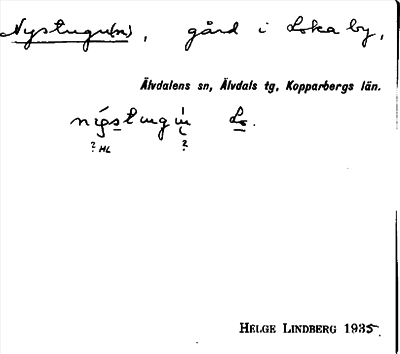 Nystugu(n), gård i Loka by,
Älvdalens sn, Älvdals tg, Kopparbergs län.
Lo.
? HL ?
HELGE LINDBERG 1935.